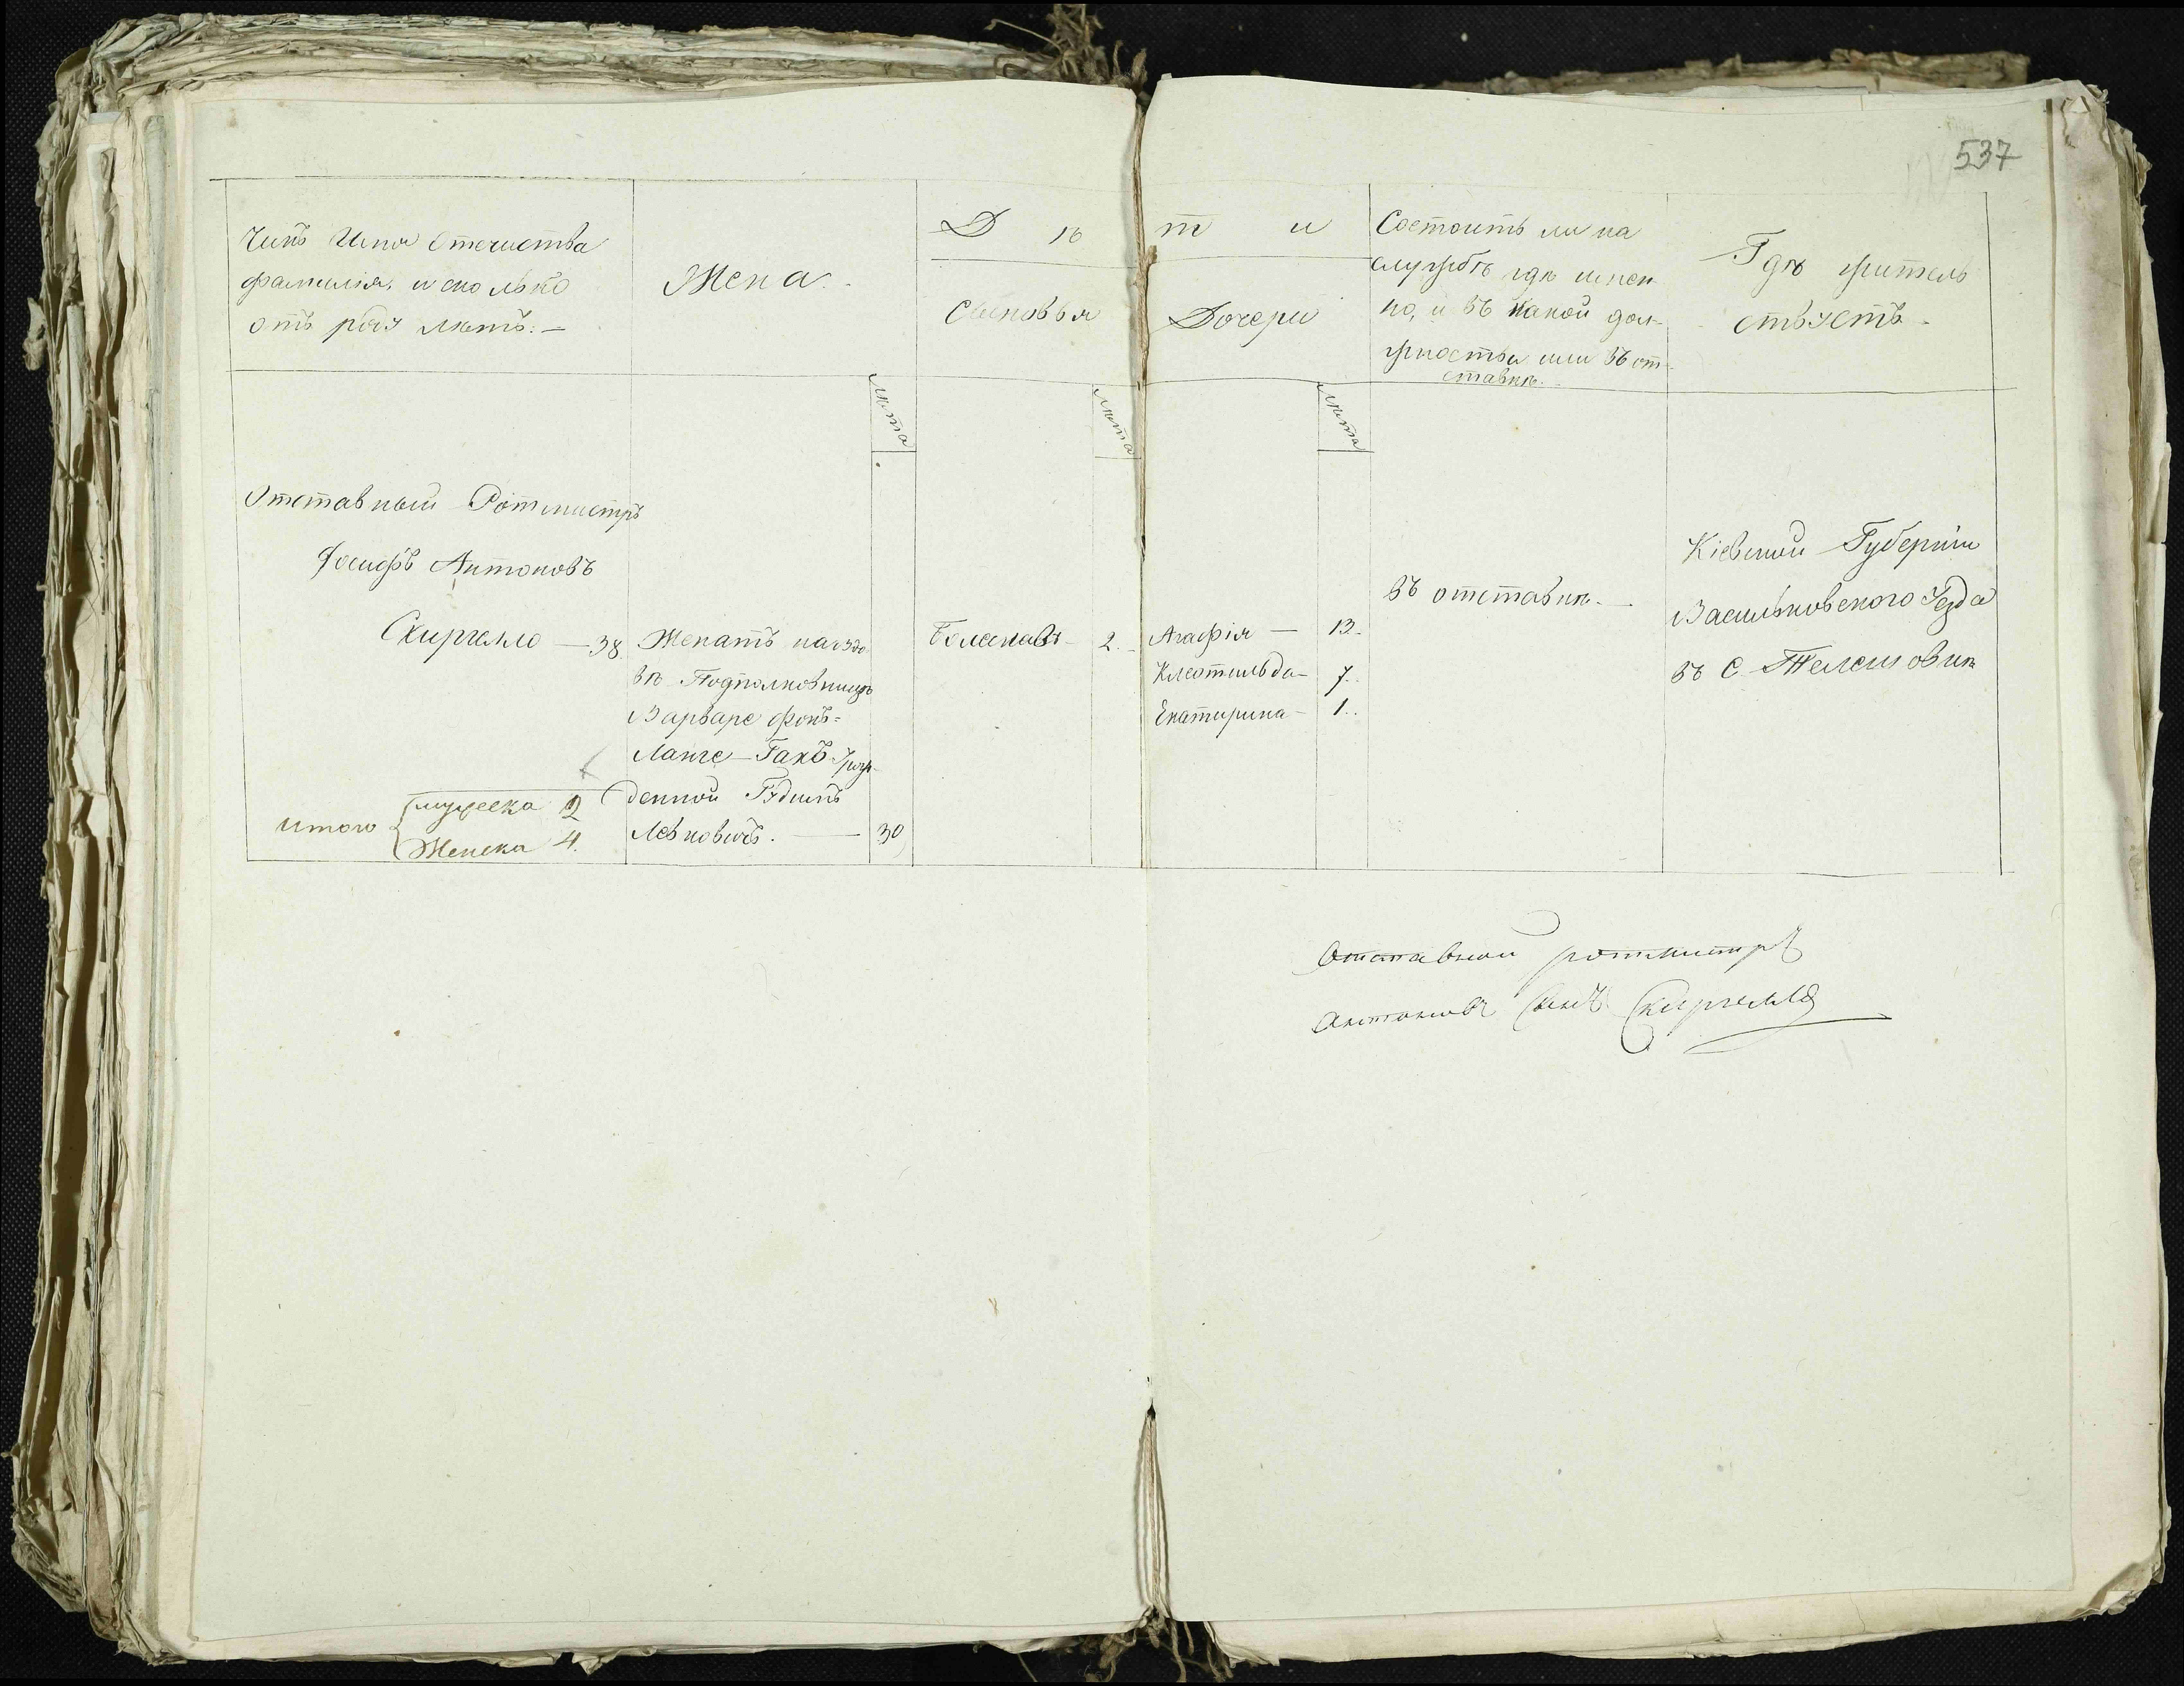 537
Чинъ Имя Отечиства
фамилия, и сколько
отъ роду лѣтъ. —
Жена.
Д ѣ т и
Сыновья
Дочери
Состоитъ ли на
службѣ гдѣ имен-
но, и въ какой дол-
жности или въ от-
ставкѣ.
Гдѣ житель
ствуетъ.
лѣта
лѣта
лѣта
Отставный Ротмистръ
Іосифъ Антоновъ
Скиргелло — 38
Женатъ на вдо
вѣ Подполковницѣ
Варваре фонъ=
Ланге-Ганъ Урож-
денной
30
Болеславъ — 2.
Агафія — 13.
Клеотильда — 7.
Екатирина — 1.
въ отставкѣ. —
Кіевской Губерніи
Васильковского Уезда
въ С
итого
мужеска 2
Женска 4.
Отставной ротмистръ
Антоновъ Сынъ Скиргелло